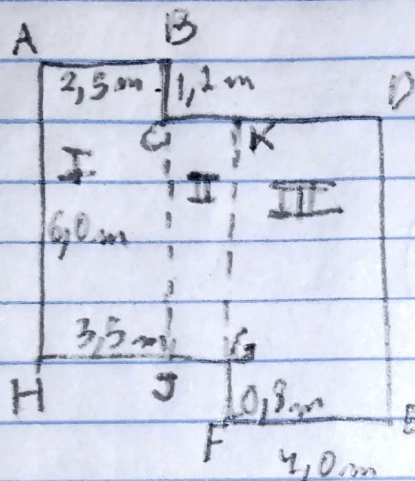 A
B
2,5 m
1,2 m
D
C
K
I
II
III
6,0 m
3,5 m
G
H
J
0,8 m
F
E
4,0 m